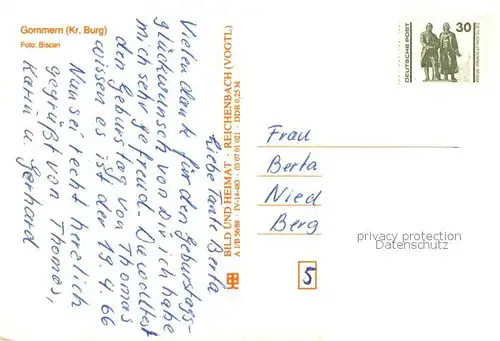 Gommern (Kr. Burg)
Foto: Biscan
Liebe Tante Berta
Vielen dank für den Geburtstags-
glückwunsch von Dir ich habe
mich sehr gefreud. Du wolltest
den Geburstag von Thomas
wissen es ist der 19.4.66
Nun sei recht herzlich
gegrüßt von Thomas,
Karin u. Gerhard
BILD UND HEIMAT · REICHENBACH (VOGTL)
A 1/B 5608 IV-14-483 03 07 01 021 DDR 0,25 M
DEUTSCHE POST
30
Frau
Berta
Nied
Berg
5
privacy protection
Datenschutz